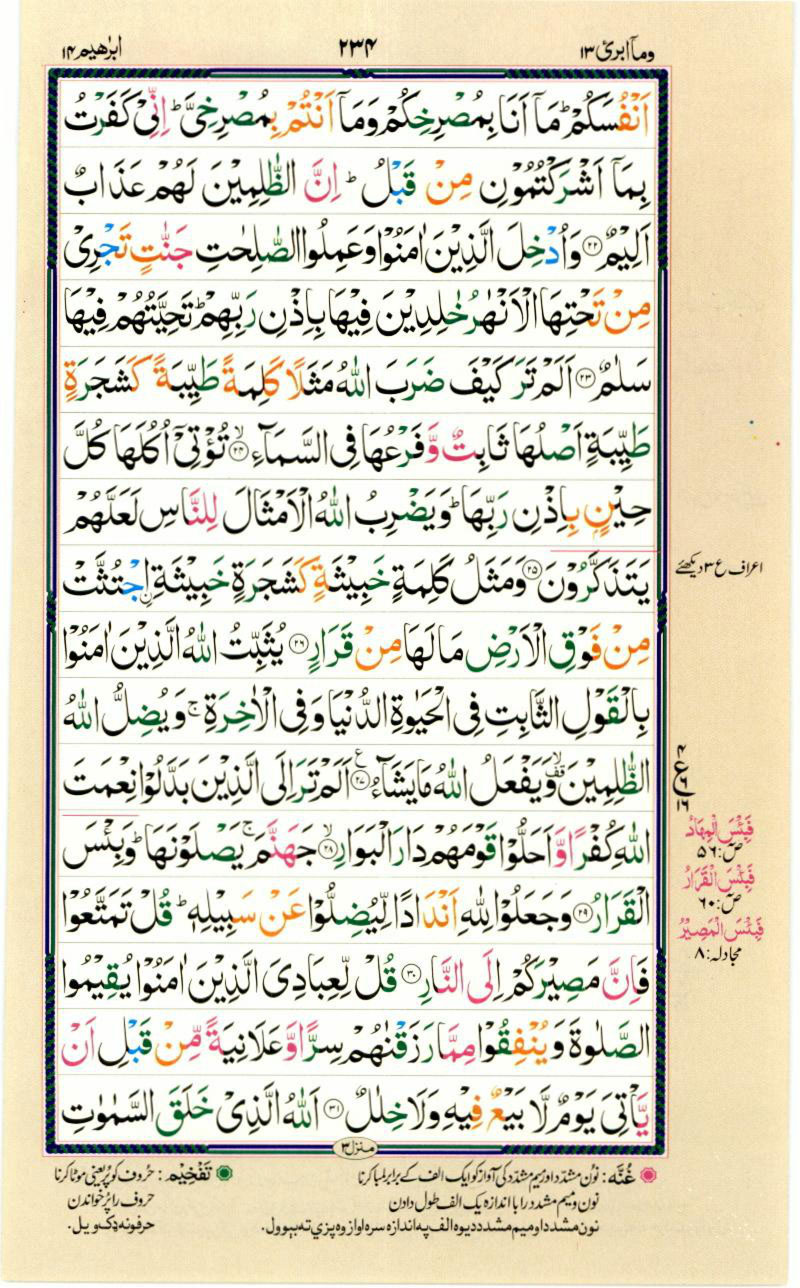 وماۤ ابرئ ۱۳
۲۳۴
ابرٰهيم ۱۴
اَنْفُسَكُمْ ؕ مَاۤ اَنَا بِمُصْرِخِكُمْ وَمَاۤ اَنْتُمْ بِمُصْرِخِیَّ ؕ اِنِّیْ كَفَرْتُ
بِمَاۤ اَشْرَكْتُمُوْنِ مِنْ قَبْلُ ؕ اِنَّ الظّٰلِمِیْنَ لَهُمْ عَذَابٌ
اَلِیْمٌ ۝۲۲ وَاُدْخِلَ الَّذِیْنَ اٰمَنُوْا وَعَمِلُوا الصّٰلِحٰتِ جَنّٰتٍ تَجْرِیْ
مِنْ تَحْتِهَا الْاَنْهٰرُ خٰلِدِیْنَ فِیْهَا بِاِذْنِ رَبِّهِمْ ؕ تَحِیَّتُهُمْ فِیْهَا
سَلٰمٌ ۝۲۳ اَلَمْ تَرَ كَیْفَ ضَرَبَ اللّٰهُ مَثَلًا كَلِمَةً طَیِّبَةً كَشَجَرَةٍ
طَیِّبَةٍ اَصْلُهَا ثَابِتٌ وَّفَرْعُهَا فِی السَّمَآءِ ۝۲۴ۙ تُؤْتِیْۤ اُكُلَهَا كُلَّ
حِیْنٍۭ بِاِذْنِ رَبِّهَا ؕ وَیَضْرِبُ اللّٰهُ الْاَمْثَالَ لِلنَّاسِ لَعَلَّهُمْ
یَتَذَكَّرُوْنَ ۝۲۵ وَمَثَلُ كَلِمَةٍ خَبِیْثَةٍ كَشَجَرَةٍ خَبِیْثَةِ ِ۟اجْتُثَّتْ
مِنْ فَوْقِ الْاَرْضِ مَا لَهَا مِنْ قَرَارٍ ۝۲۶ یُثَبِّتُ اللّٰهُ الَّذِیْنَ اٰمَنُوْا
بِالْقَوْلِ الثَّابِتِ فِی الْحَیٰوةِ الدُّنْیَا وَفِی الْاٰخِرَةِ ۚ وَیُضِلُّ اللّٰهُ
الظّٰلِمِیْنَ ۙ۫ وَیَفْعَلُ اللّٰهُ مَا یَشَآءُ ۝۲۷ ع اَلَمْ تَرَ اِلَی الَّذِیْنَ بَدَّلُوْا نِعْمَتَ
اللّٰهِ كُفْرًا وَّاَحَلُّوْا قَوْمَهُمْ دَارَ الْبَوَارِ ۝۲۸ۙ جَهَنَّمَ ۚ یَصْلَوْنَهَا ؕ وَبِئْسَ
الْقَرَارُ ۝۲۹ وَجَعَلُوْا لِلّٰهِ اَنْدَادًا لِّیُضِلُّوْا عَنْ سَبِیْلِهٖ ؕ قُلْ تَمَتَّعُوْا
فَاِنَّ مَصِیْرَكُمْ اِلَی النَّارِ ۝۳۰ قُلْ لِّعِبَادِیَ الَّذِیْنَ اٰمَنُوْا یُقِیْمُوا
الصَّلٰوةَ وَیُنْفِقُوْا مِمَّا رَزَقْنٰهُمْ سِرًّا وَّعَلَانِیَةً مِّنْ قَبْلِ اَنْ
یَّاْتِیَ یَوْمٌ لَّا بَیْعٌ فِیْهِ وَلَا خِلٰلٌ ۝۳۱ اَللّٰهُ الَّذِیْ خَلَقَ السَّمٰوٰتِ
اعراف ع ۳ دیکھئے
۴
ع
۶
۱۶
فَبِئْسَ الْمِهَادُ
صٓ: ۵۶
فَبِئْسَ الْقَرَارُ
صٓ: ۶۰
فَبِئْسَ الْمَصِیْرُ
مجادلہ: ۸
منزل ۳
غُنَّه: نون مشدد اور میم مشدد کی آواز کو ایک الف کے برابر لمبا کرنا
نون و میم مشدد را با اندازہ یک الف طول دادن
نون مشدد او میم مشدد دیوہ الف په اندازہ سرہ اواز وہ پزې ته بېوول.
تَفْخِیْم: حروف کو پُر یعنی موٹا کرنا
حروف را پُر خواندن
حرفونه ډک ویل.